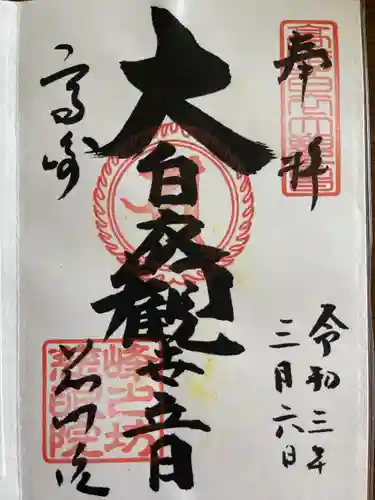 奉拝
令和三年
三月六日
大白衣観世音
高崎
慈眼院